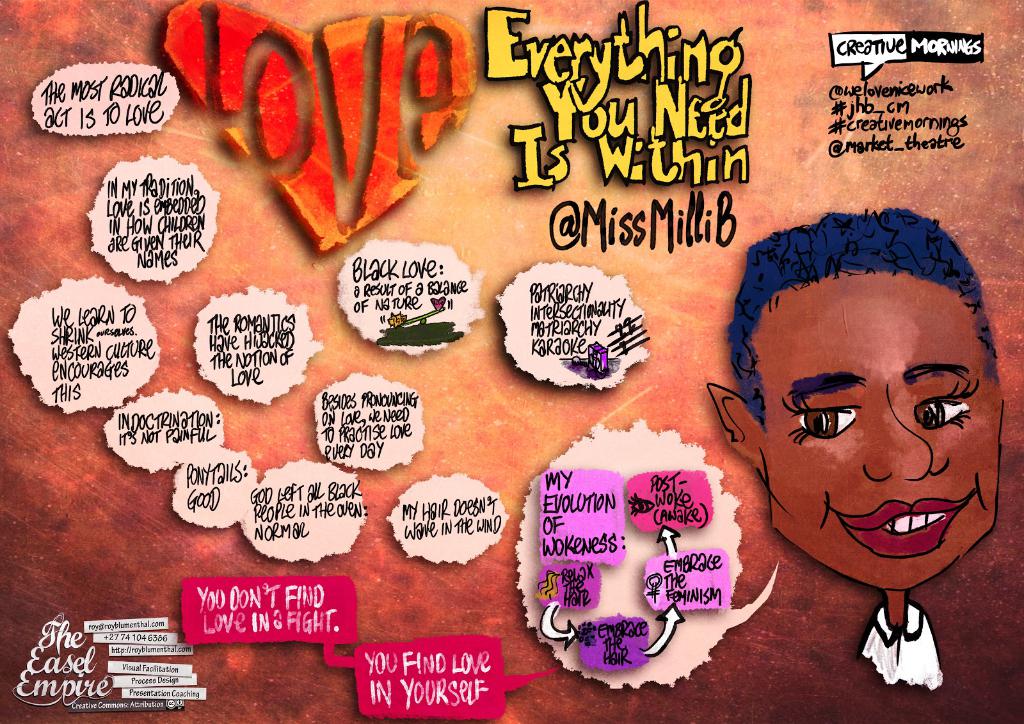 Love
Everything
You Need
Is Within
@MissMilliB
CREATIVE MORNINGS
@welovenicework
#jhb_cm
#creativemornings
@market_theatre
THE MOST RADICAL
ACT IS TO LOVE
IN MY TRADITION,
LOVE IS EMBEDDED
IN HOW CHILDREN
ARE GIVEN THEIR
NAMES
WE LEARN TO
SHRINK OURSELVES.
WESTERN CULTURE
ENCOURAGES
THIS
THE ROMANTICS
HAVE HIJACKED
THE NOTION OF
LOVE
BLACK LOVE:
A RESULT OF A BALANCE
OF NATURE
PATRIARCHY
INTERSECTIONALITY
MATRIARCHY
KARAOKE
INDOCTRINATION:
IT'S NOT PAINFUL
BESIDES PRONOUNCING
ON LOVE, WE NEED
TO PRACTISE LOVE
EVERY DAY
PONYTAILS:
GOOD
GOD LEFT ALL BLACK
PEOPLE IN THE OVEN:
NORMAL
MY HAIR DOESN'T
WAVE IN THE WIND
MY
EVOLUTION
OF
WOKENESS:
RELAX
THE
HAIR
EMBRACE
THE
HAIR
EMBRACE
THE
FEMINISM
POST-
WOKE
(AWAKE)
YOU DON'T FIND
LOVE IN A FIGHT.
YOU FIND LOVE
IN YOURSELF
The
Easel
Empire
roy@royblumenthal.com
+27 74 104 6386
http://royblumenthal.com
Visual Facilitation
Process Design
Presentation Coaching
Creative Commons: Attribution